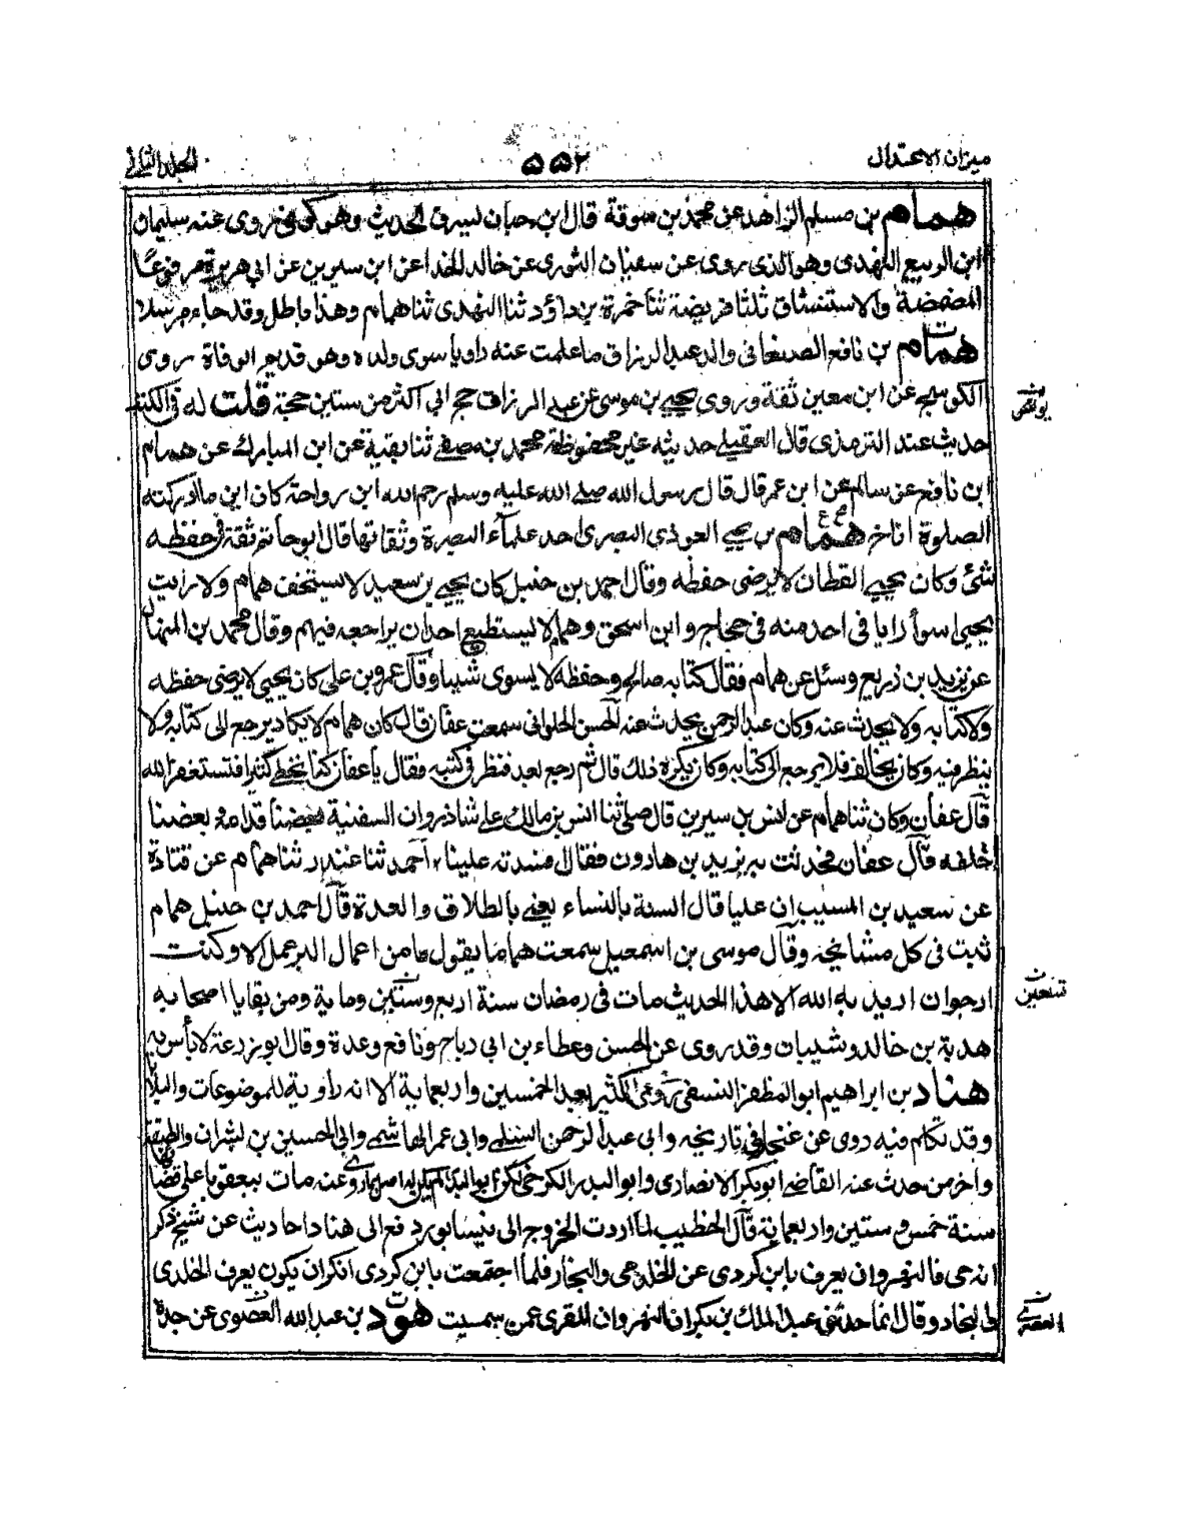 ميزان الاعتدال
٥٥٢
المجلد الثاني
همام بن مسلم الزاهد عن محمد بن سوقة قال ابن حبان يسرق الحديث وهو كوفي روى عنه سليمان
ابن الربيع النهدي وهو الذي روى عن سفيان الثوري عن خالد الحذا عن ابن سيرين عن ابي هريرة مرفوعا
المضمضة والاستنشاق ثلثا فريضة ثنا حمزة بن داؤد ثنا النهدي ثنا همام وهذا باطل وقد جاء مرسلا
همام بن نافع الصنعاني والد عبد الرزاق ما علمت عنه راويا سوى ولده وهو قديم الوفاة روى
الكوسج عن ابن معين ثقة وروى يحيى بن موسى عن عبد الرزاق حج ابي اكثر من ستين حجة قلت له في الكتب
حديث عند الترمذي قال العقيلي حديثه غير محفوظ محمد بن مصفى ثنا بقية عن ابن المبارك عن همام
ابن نافع عن سالم عن ابن عمر قال قال رسول الله صلى الله عليه وسلم رحم الله ابن رواحة كان اين ما ادركته
الصلوة اناخ همام بن يحيى العوذي البصري احد علماء البصرة وثقاتها قال ابو حاتم ثقة في حفظه
شئ وكان يحيى القطان لا يرضى حفظه وقال احمد بن حنبل كان يحيى بن سعيد لا يستخف همام ولا رايت
يحيى اسوأ رايا في احد منه في حجاج و ابن اسحق وهمام لا يستطيع احد ان يراجعه فيهم وقال محمد بن المنهال
عن يزيد بن زريع وسئل عن همام فقال كتابه صالح وحفظه لا يسوى شيئا وقال عمرو بن علي كان يحيى لا يرضى حفظه
ولا كتابه ولا يحدث عنه وكان عبد الرحمن يحدث عنه الحسن الحلواني سمعت عفان قال كان همام لا يكاد يرجع الى كتابه ولا
ينظر فيه وكان يخالف فلا يرجع الى كتابه وكان يكره ذلك قال ثم رجع بعد فنظر في كتبه فقال يا عفان كنا نخطئ كثيرا فنستغفر الله
قال عفان وكان ثنا همام عن انس بن سيرين قال صلى بنا انس بن مالك على شاذروان السفنية بعضنا قدامه وبعضنا
خلفه قال عفان فحدثت به يزيد بن هارون فقال افسدته علينا، احمد ثنا غندر ثنا همام عن قتادة
عن سعيد بن المسيب ان عليا قال السنة بالنساء يعني بالطلاق والعدة قال احمد بن حنبل همام
ثبت في كل مشايخه وقال موسى بن اسمعيل سمعت هماما يقول ما من اعمال البر عمل الا وكنت
ارجو ان اريد به الله الا هذا الحديث مات في رمضان سنة اربع وستين وماية ومن بقايا اصحابه
هدبة بن خالد وشيبان وقد روى عن الحسن وعطاء بن ابي رباح ونافع وعدة وقال ابو زرعة لا بأس به
هناد بن ابراهيم ابو المظفر النسفي روى الكثير بعد الخمسين واربعماية الا انه راوية للموضوعات والبلايا
وقد تكلم فيه روى عن غنجار في تاريخه وابي عبد الرحمن السلمي وابي عمر الهاشمي وابي الحسين بن بشران والطبقة
واخر من حدث عنه القاضي ابو بكر الانصاري وابو البدر الكرخي لكن ابو البدر وعنه مات ببعقوبا على قضا
سنة خمس وستين واربعماية قال الخطيب لما اردت الخروج الى نيسابور دفع الى هناد احاديث عن شيخ ذكر
انه حي فالنهروان يعرف بابن كردي عن الخلدي والبخار فلما اجتمعت بابن كردي انكر ان يكون يعرف الخلدي
او البخار وقال انما حدثني عبد الملك بن بكران النهرواني المقري عمن سميت هود بن عبد الله العصوي عن جدة
تسعين
العصري